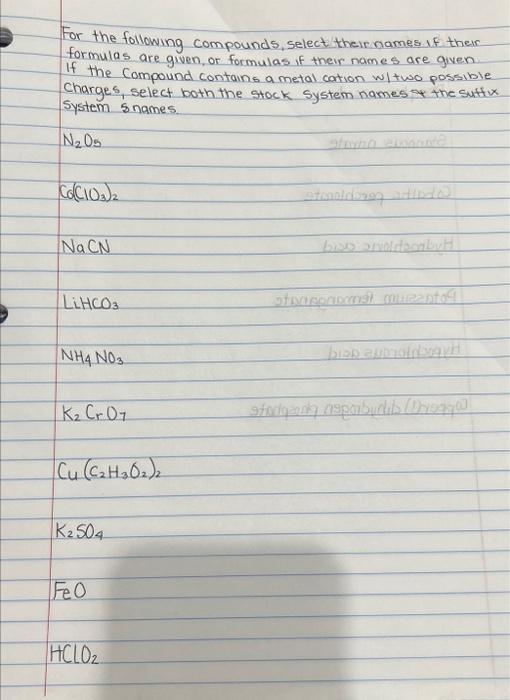 For the following compounds, select their names if their
formulas are given, or formulas if their names are given.
If the compound contains a metal cation w/two possible
Charges, select both the stock system names & the suffix
system s names.
N₂O₅
Co(ClO₃)₂
NaCN
LiHCO₃
NH₄NO₃
K₂CrO₇
Cu(C₂H₃O₂)₂
K₂SO₄
FeO
HClO₂